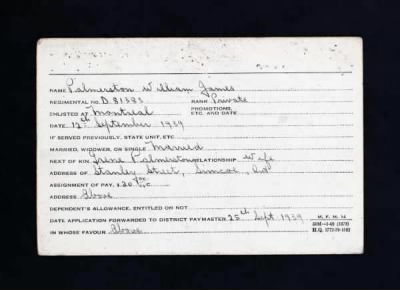 NAME Palmerston William James
REGIMENTAL NO. D 81383 RANK Private
ENLISTED AT Montreal PROMOTIONS, ETC. AND DATE
DATE 12th September 1939
IF SERVED PREVIOUSLY, STATE UNIT, ETC
MARRIED, WIDOWER, OR SINGLE Married
NEXT OF KIN Irene Palmerston RELATIONSHIP Wife
ADDRESS OF Stanley Street, Simcoe, Ont
ASSIGNMENT OF PAY, $20
ADDRESS Above
DEPENDENT'S ALLOWANCE, ENTITLED OR NOT
DATE APPLICATION FORWARDED TO DISTRICT PAYMASTER 25th Sept 1939
IN WHOSE FAVOUR Above